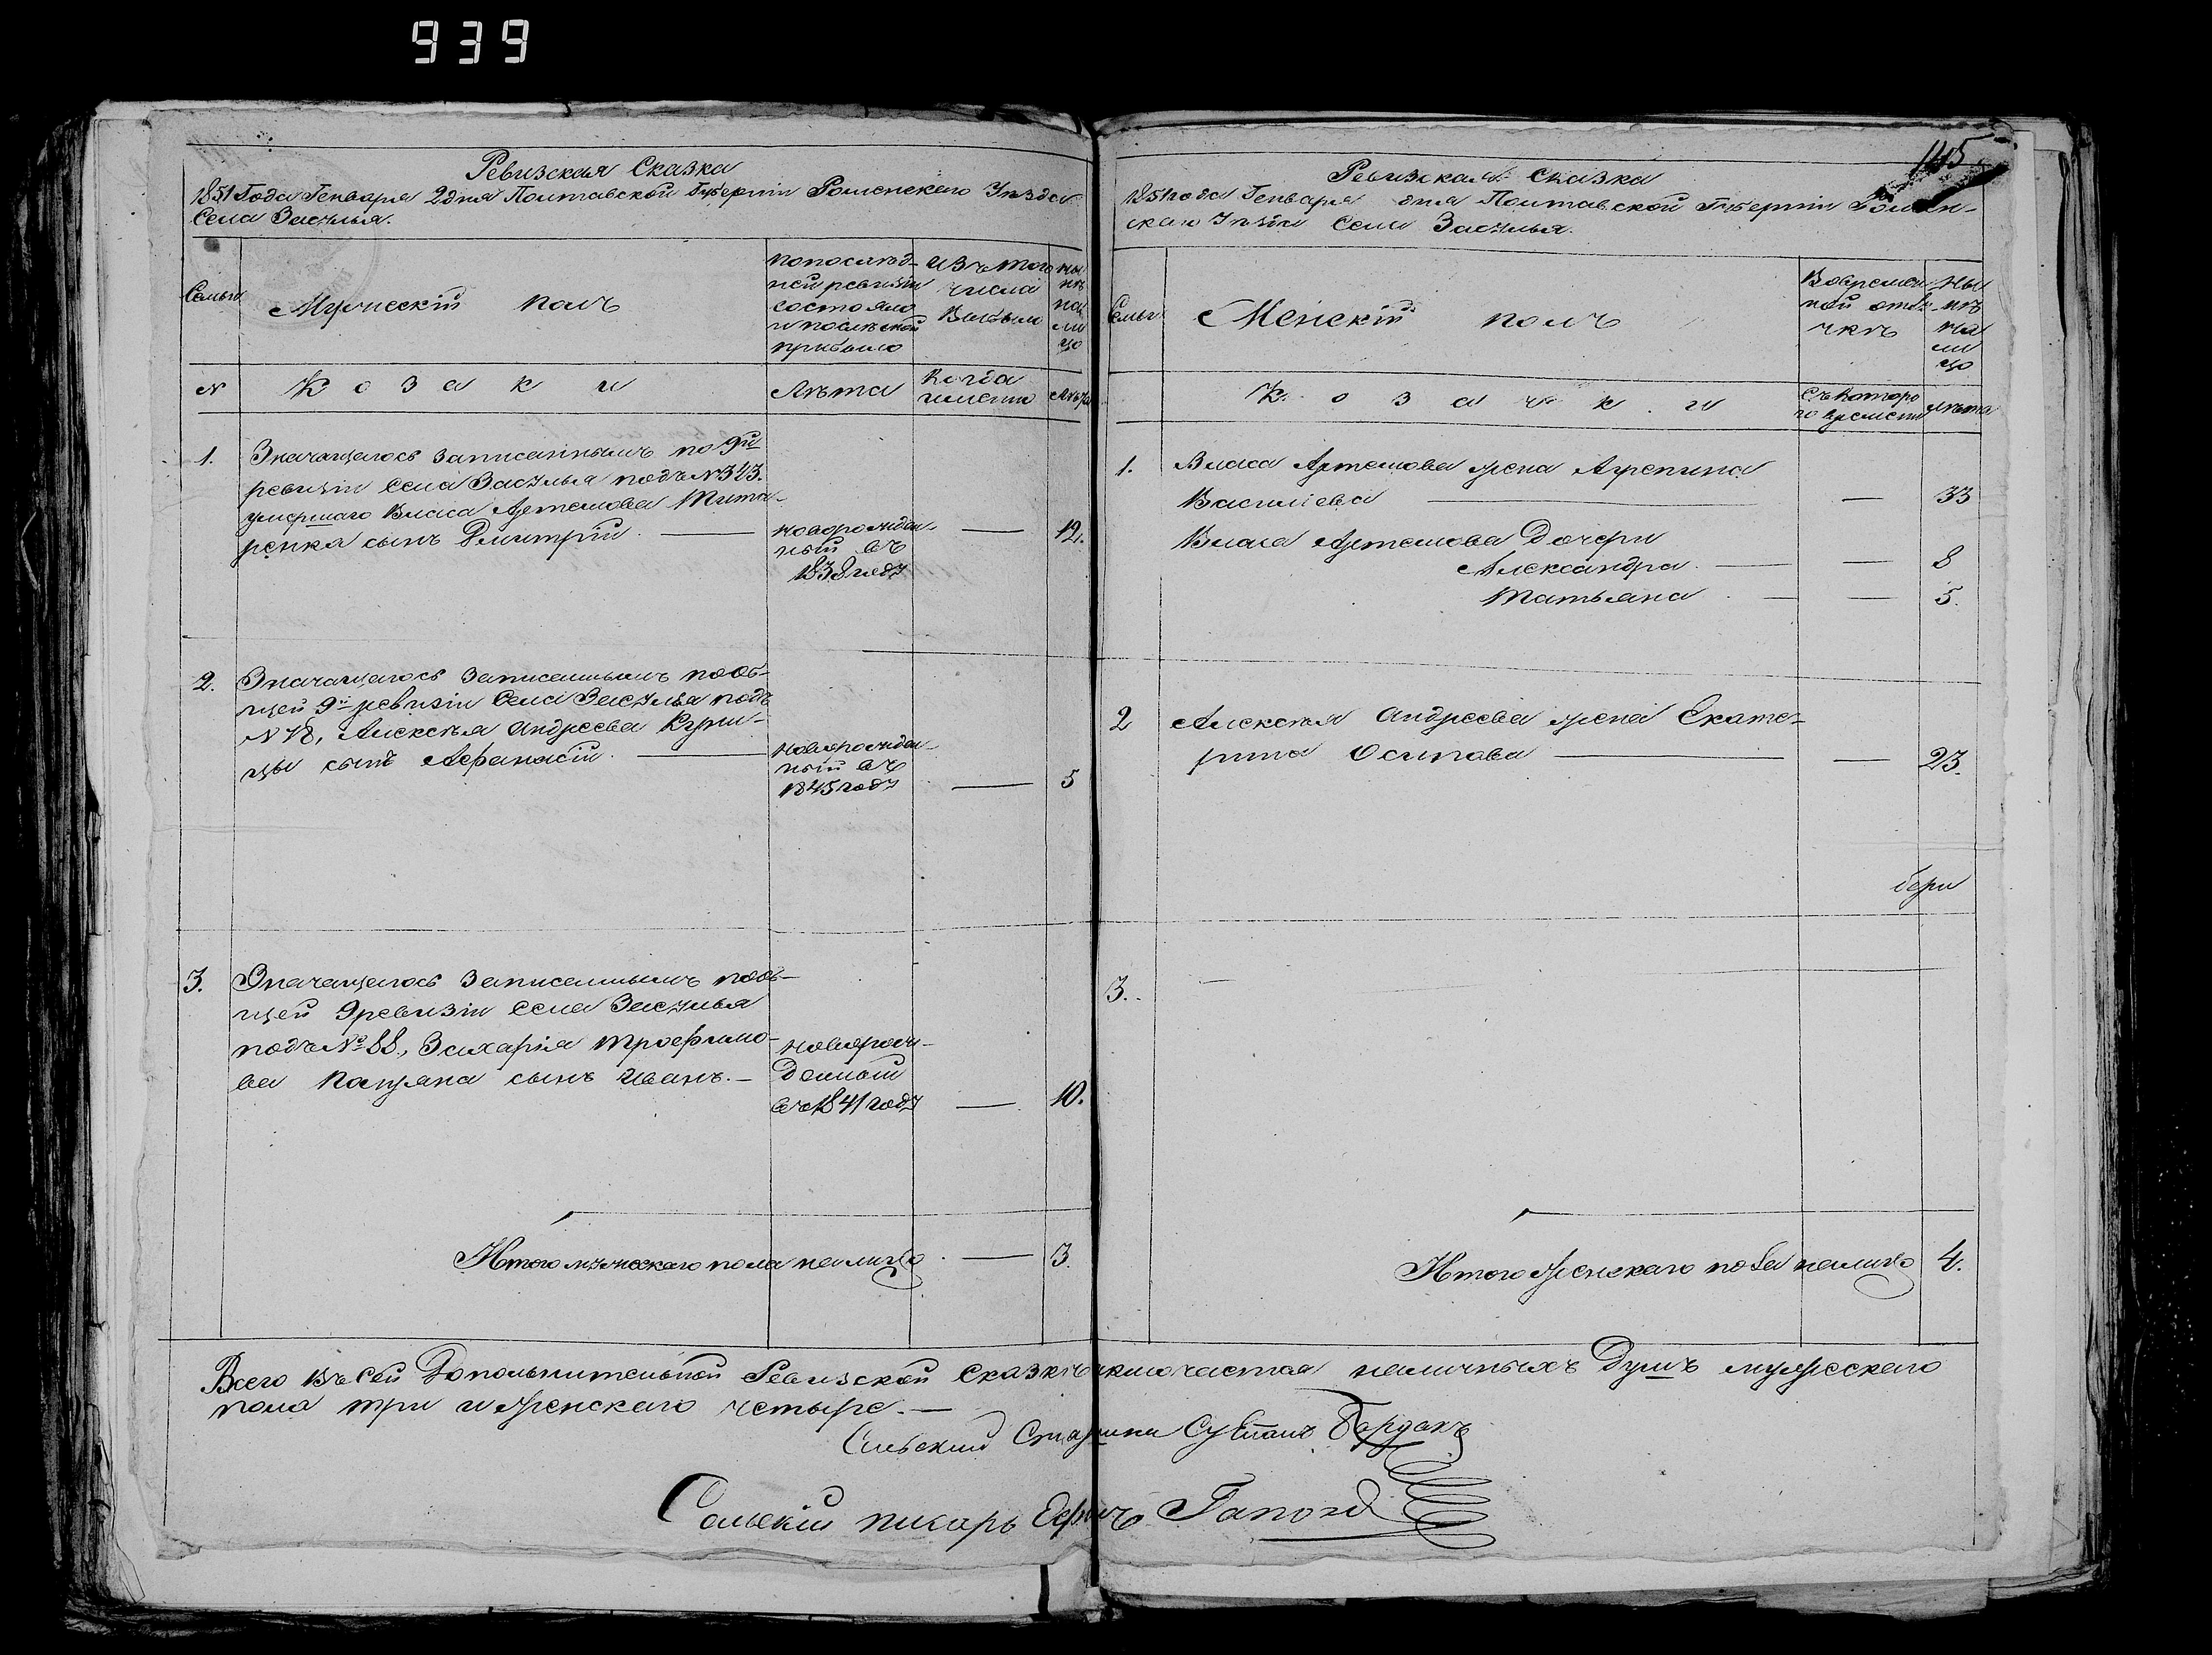 939
Ревизская Сказка
1851 Года Генваря 2 дня Полтавской Губерніи Роменскаго Уѣзда
Села Засулья.
Семьи
Мужескій полъ
По послѣд-
ней ревизіи
состояло
и после оной
прибыло
Изъ того
числа
Выбыло
Ны
нѣ
на
ли
цо
№
Козаки
Лѣта
Когда
именно
Лѣта
1.
Значащагось записаннымъ по 9й
ревизіи Села Засулья подъ №323.
умершаго Власа Артемова Титa-
ренка сынъ Дмитрій.
новорожден-
ный въ
1838 году
12.
2.
Значащагось записаннымъ по об-
щей 9й ревизіи Села Засулья подъ
№ 18, Алексѣя Андреева Кури-
цы сынъ Афанасій.
новорожден-
ный въ
1845 году
5
3.
Значащагось записаннымъ по об-
щей 9 ревизіи села Засулья
подъ № 88, Захарія Трофимо-
ва сынъ Иванъ.
новорож-
денный
въ 1841 году
10.
Итого мужескаго пола налицо
3.
115
Ревизская Сказка
1851 года Генваря дня Полтавской Губерніи Ромен-
скаго Уѣзда Села Засулья.
Семьи
Женскій полъ
Во времен-
ной отлу-
чкѣ
Ны
нѣ
на
ли
цо
Козачки
Съ которо
го времени
Лѣта
1.
Власа Артемова жена Агрепина
Василіева
33
Власа Артемова Дочери
Александра
8
Татьяна
5.
2
Алексѣя Андреева жена Екате-
рина Осипова
23.
3.
Итого женскаго пола налицо
4.
Всего въ сей Дополнительной Ревизской сказкѣ включается наличныхъ Душъ мужескаго
пола три и женскаго четыре.
Сельский Старшина
Сельскій писарь Ефимъ